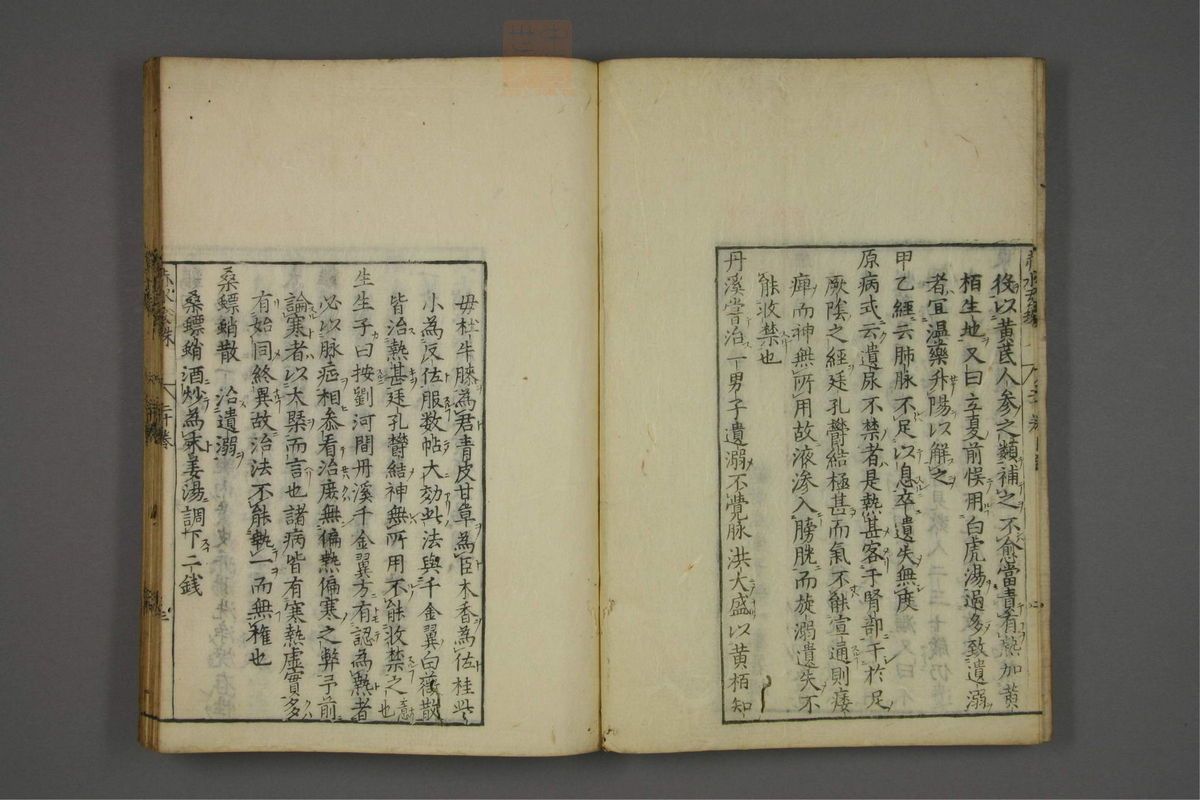 後以黄芪人参之類補之不愈當責有熱加黄
栢生地又曰立夏前候用白虎湯過多致遺溺
者宜溫藥升陽以解之
甲乙經云肺脉不足以息卒遺失無度
原病式云遺尿不禁者是熱甚客于腎部干於足
厥陰之經廷孔鬱結極甚而氣不能宣通則痿
痺而神無所用故液滲入膀胱而旋溺遺失不
能收禁也
丹溪嘗治一男子遺溺不覺脉洪大盛以黄栢知
毋杜牛膝為君青皮甘草為臣木香為佐桂些
小為反佐服数帖大効此法與千金翼白薇散
皆治熱甚廷孔鬱結神無所用不能收禁之意也
生生子曰按劉河間丹溪千金翼方有認為熱者
必以脉症相叅看治庶無偏熱偏寒之弊予前
論寒者以大槩而言也諸病皆有寒熱虛實多
有始同終異故治法不能執一而無權也
桑螵蛸散 治遺溺
桑螵蛸酒炒為末姜湯調下二銭